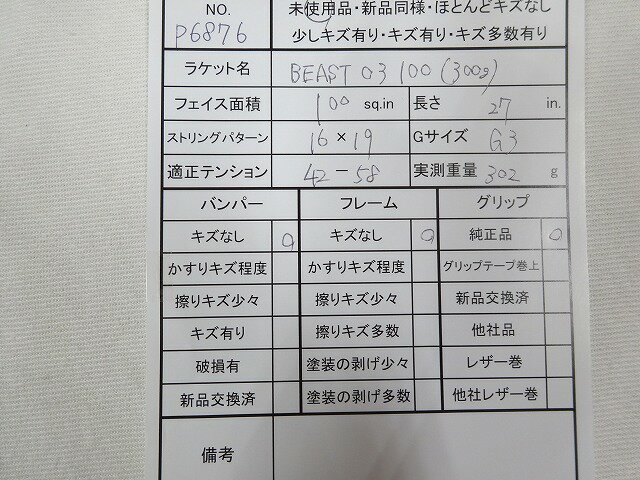 NO. 未使用品・新品同様・ほとんどキズなし
P6876 少しキズ有り・キズ有り・キズ多数有り
ラケット名 BEAST O3 100 (300g)
フェイス面積 100 sq.in 長さ 27 in.
ストリングパターン 16×19 Gサイズ G3
適正テンション 42-58 実測重量 302 g
バンパー フレーム グリップ
キズなし O キズなし O 純正品 O
かすりキズ程度 かすりキズ程度 グリップテープ巻上
擦りキズ少々 擦りキズ少々 新品交換済
キズ有り 擦りキズ多数 他社品
破損有 塗装の剥げ少々 レザー巻
新品交換済 塗装の剥げ多数 他社レザー巻
備考